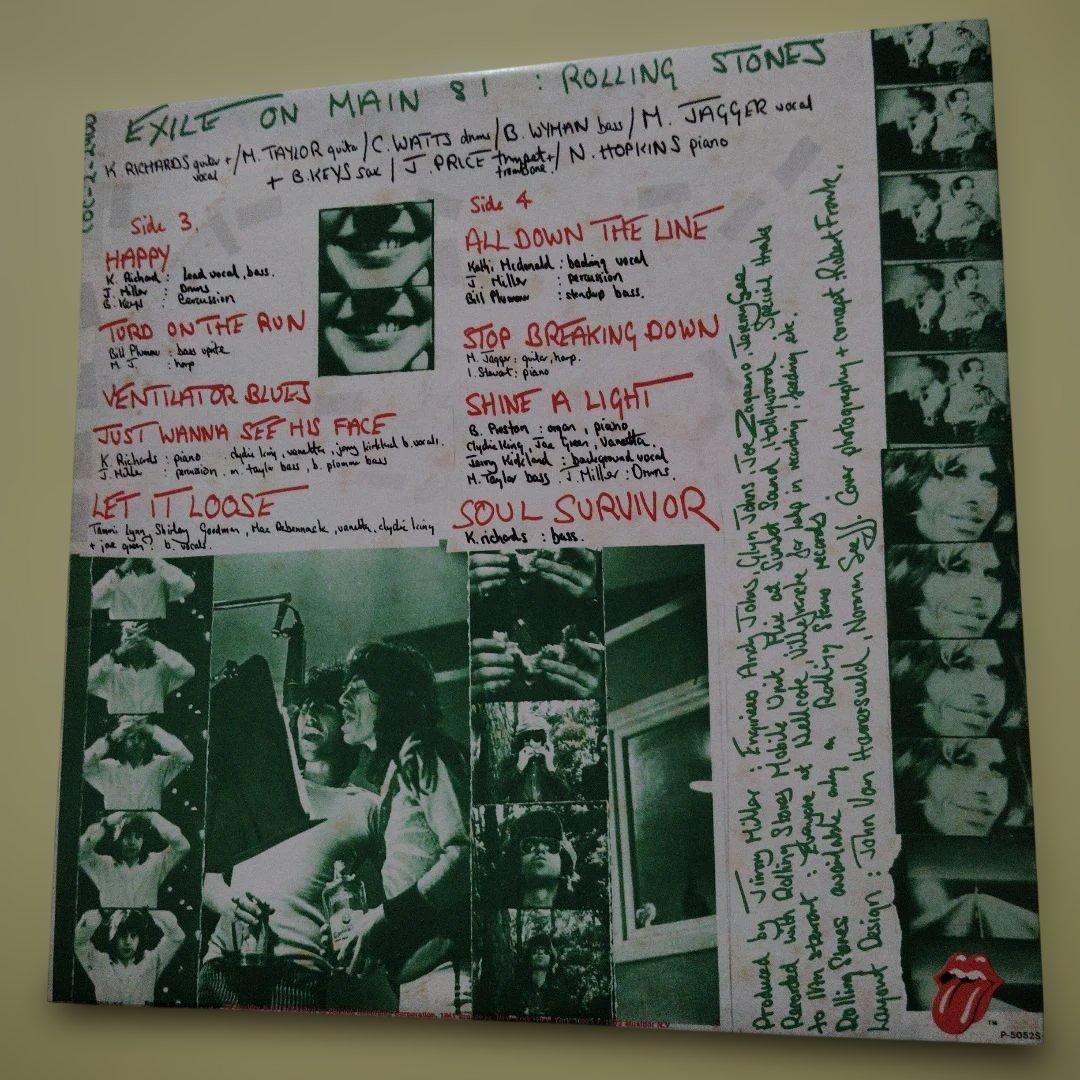 COC-2-2900
EXILE ON MAIN ST : ROLLING STONES
K. RICHARDS guitar + vocal / M. TAYLOR guita / C. WATTS drums / B. WYMAN bass / M. JAGGER vocal
+ B. KEYS sax / J. PRICE trumpet + trombone / N. HOPKINS piano
Side 3.
HAPPY
K. Richard : Lead vocal, bass.
J. Miller : Drums
B. Keys : Percussion
TURD ON THE RUN
Bill Plummer : bass uprite
M J. : harp
VENTILATOR BLUES
JUST WANNA SEE HIS FACE
K. Richards : piano clydie king, vanetta, jerry kirkland b. vocals.
J. Miller : percussion. m. taylor bass, b. plummer bass
LET IT LOOSE
Tammi Lynn, Shirley Goodman, Mac Rebennack, vanetta, clydie king
+ joe green : b. vocals.
Side 4
ALL DOWN THE LINE
Kathi Mcdonald : backing vocal
J. Miller : percussion
Bill Plummer : standup bass.
STOP BREAKING DOWN
M. Jagger : guitar, harp.
I. Stewart : piano
SHINE A LIGHT
B. Preston : organ, piano
Clydie King, Joe Green, Vanetta,
Jerry Kirkland : background vocal
M. Taylor bass J. Miller : Drums.
SOUL SURVIVOR
K. richards : bass.
Produced by Jimmy Miller : Engineers Andy Johns, Glyn Johns, Joe Zagarino, Jeremy Gee
Recorded with Rolling Stones Mobile Unit Plus at Sunset Sound, Hollywood. Special thanks
to Ian stewart : Everyone at Nellcote, Villefranche for help in recording, feeding etc.
Rolling Stones available only on Rolling Stones records
Layout Design : John Van Hamersveld, Norman Seeff. Cover photography + concept : Robert Frank.
TM
P-5052S